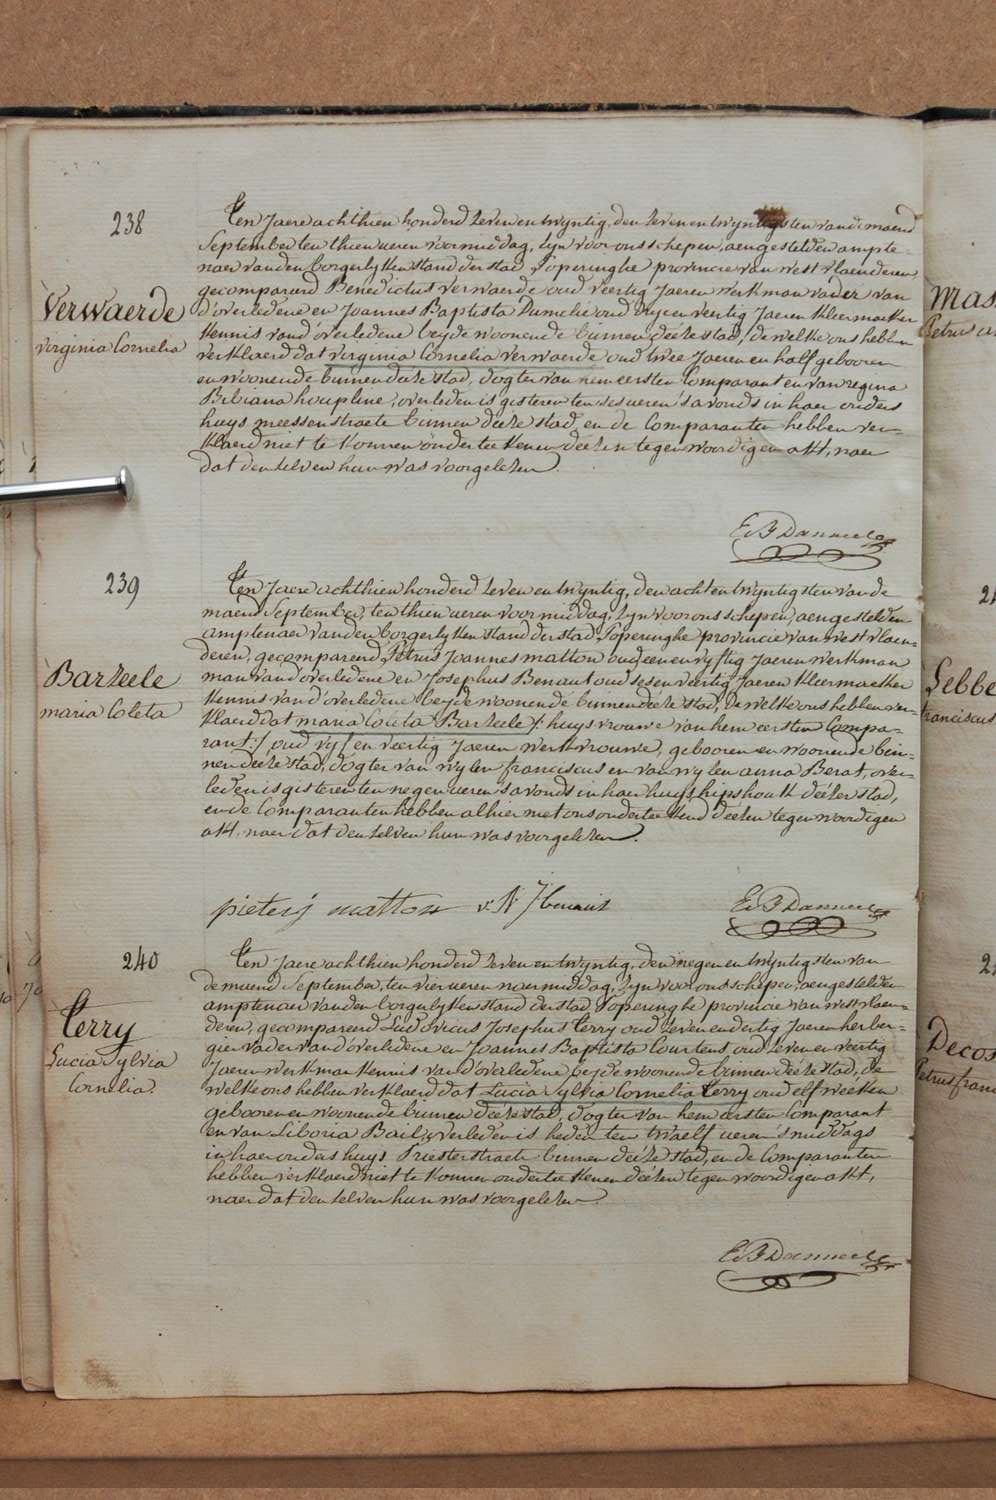 238
Verwaerde
virginia Cornelia
Ten Jaere achthien honderd zeven en twyntig, den zeven en twyntigsten van de maend
September ten thien ueren voormiddag, zyn voor ons schepen, aengestelden ampte-
naer van den borgerlyken stand der stad Poperinghe provincie van west vlaenderen
gecompareerd Benedictus verwaerde oud veertig Jaeren werkman vader van
d'overledene en Joannes Baptista oud dryen veertig Jaeren kleermaeker
kennis van d'overledene beyde woonende binnen deeze stad, de welke ons hebben
verklaerd dat virginia Cornelia verwaerde oud twee Jaeren en half gebooren
en woonende binnen deeze stad, dogter van hem eersten Comparant en van regina
Bibiana houpline, overleden is gisteren ten ses ueren 's avonds in haer ouders
huys meessenstraete binnen deeze stad, en de Comparanten hebben ver-
klaerd niet te konnen onderteekenen deezen tegenwoordigen akt, naer
dat den zelven hun was voorgelezen.
E B Danneel
239
Barzeele
maria Coleta
Ten Jaere achthien honderd zeven en twyntig, den acht en twyntigsten van de
maend September, ten thien ueren voormiddag, zyn voor ons schepen, aengestelden
amptenaer van den borgerlyken stand der stad Poperinghe provincie van west vlaen-
deren, gecompareerd Petrus Joannes matton oud een en vyftig Jaeren werkman
man van d'overledene en Josephus Benaut oud ses en veertig Jaeren kleermaeker
kennis van d'overledene beyde woonende binnen deeze stad, de welke ons hebben ver-
klaerd dat maria Coleta Barzeele /: huysvrouwe van hem eersten Compa-
rant :/ oud vyf en veertig Jaeren werkvrouwe, gebooren en woonende bin-
nen deeze stad, dogter van wylen franciscus en van wylen anna Berat, over-
leden is gisteren ten negen ueren 's avonds in haer huys hipshoek deezer stad,
en de Comparanten hebben alhier met ons onderteekend deezen tegenwoordigen
akt, naer dat den zelven hun was voorgelezen.
pieter j matton J benaut
E B Danneel
240
Terry
Lucia Sylvia
Cornelia.
Ten Jaere achthien honderd zeven en twyntig, den negen en twyntigsten van
de maend September, ten vier ueren naermiddag, zyn voor ons schepen, aengestelden
amptenaer van den borgerlyken stand der stad Poperinghe provincie van west vlaen-
deren, gecompareerd Ludovicus Josephus Terry oud zeven en dertig Jaeren herber-
gier vader van d'overledene en Joannes Baptista Courtens oud zeven en veertig
Jaeren werkman kennis van d'overledene beyde woonende binnen deeze stad, de
welke ons hebben verklaerd dat Lucia Sylvia Cornelia Terry oud elf weeken
gebooren en woonende binnen deeze stad, dogter van hem eersten Comparant
en van Liboria Bail, overleden is heden ten twaelf ueren 's middags
in haer ouders huys Priesterstraete binnen deeze stad, en de Comparanten
hebben verklaerd niet te konnen onderteekenen deezen tegenwoordigen akt,
naer dat den zelven hun was voorgelezen.
E B Danneel
Mas
Lebbe
franciscus
Decos